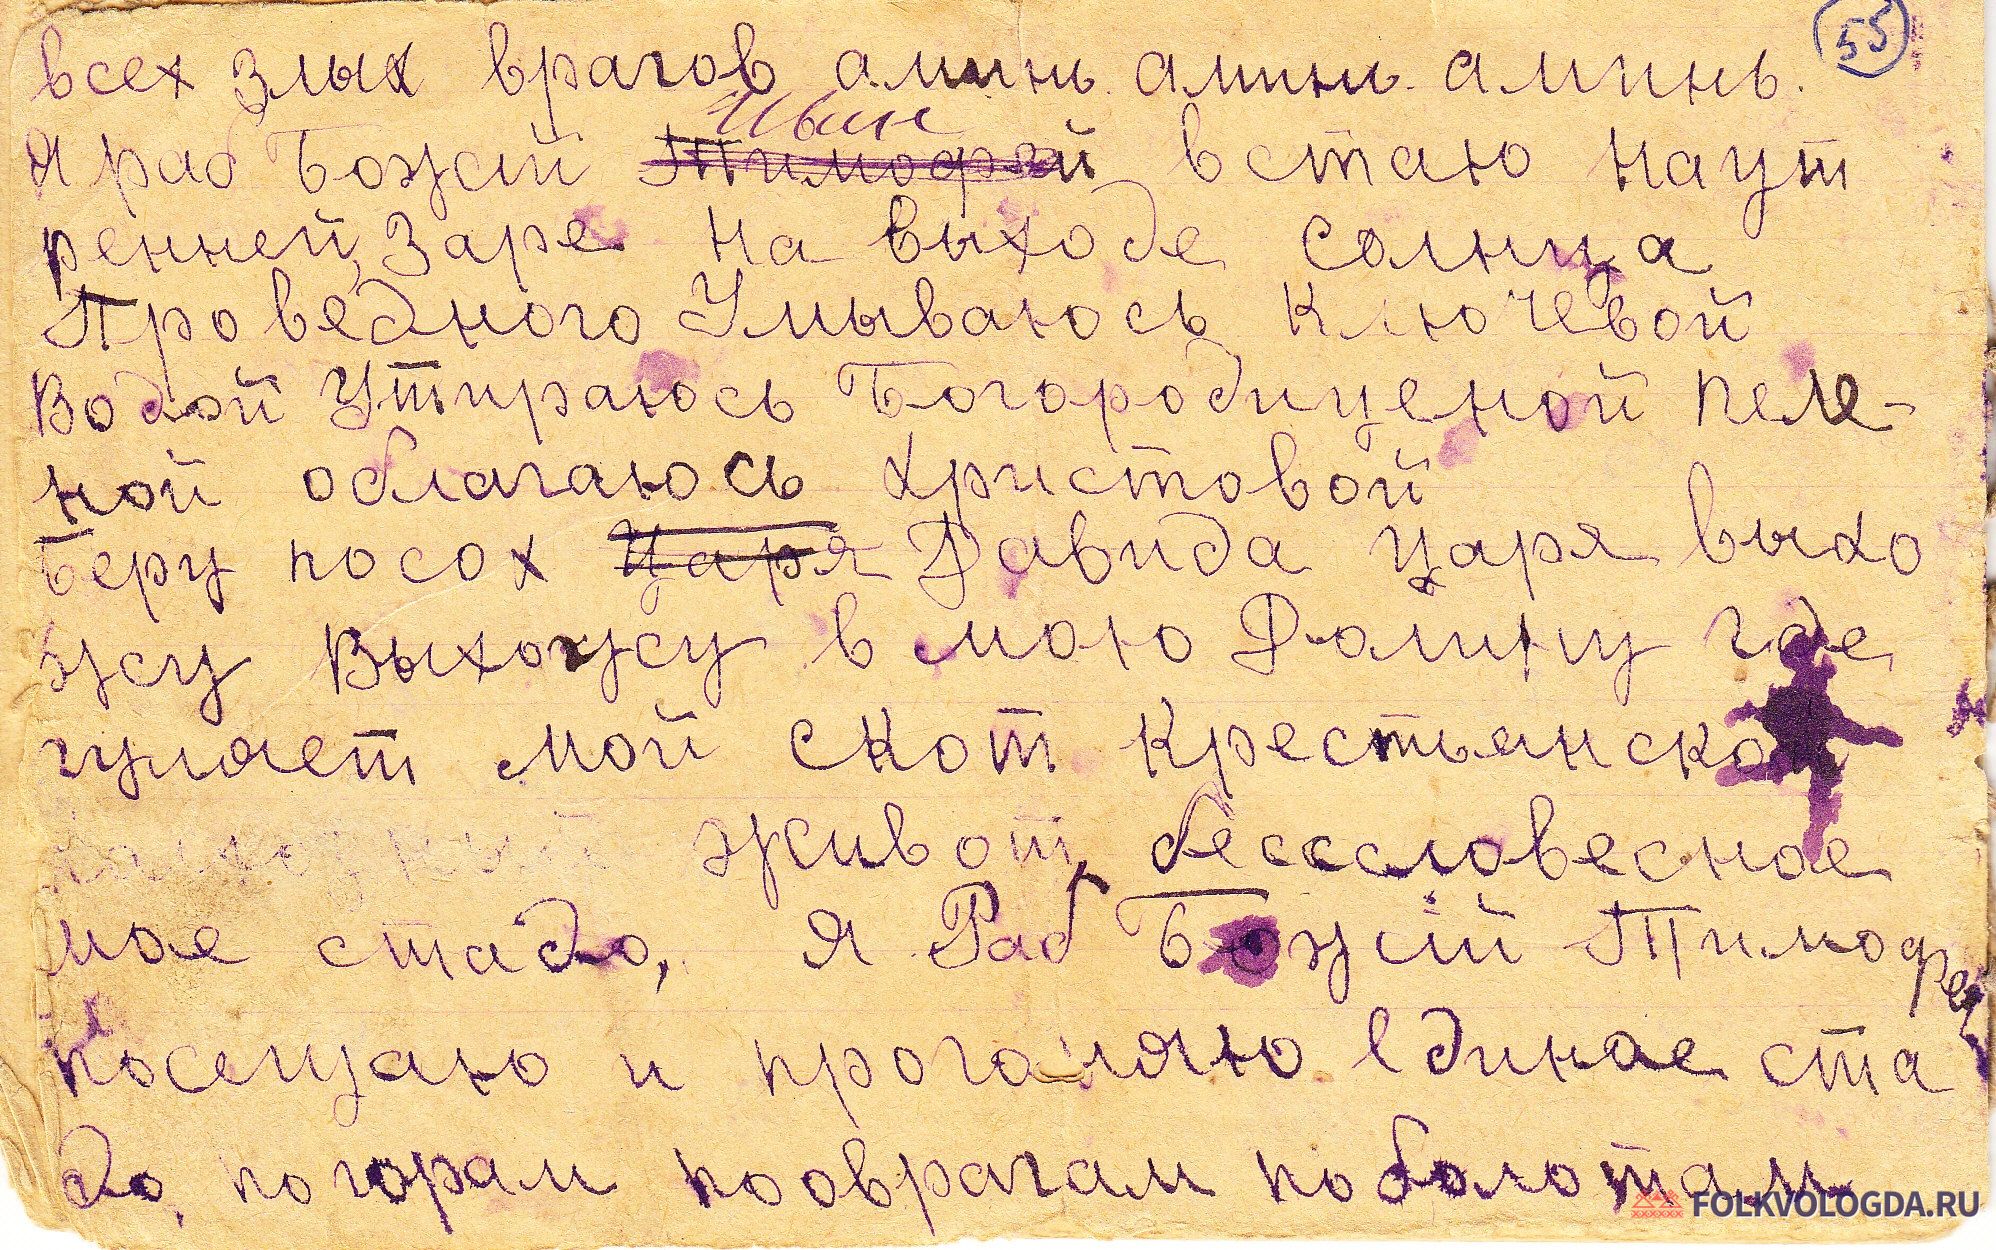 55
всех злых врагов аминь. аминь. аминь.
Иван
Я раб Божий Тимофей встаю наут
ренней, заре на выходе солнца
Проведного Умываюсь ключевой
Водой Утираюсь Богородиценой пеле-
ной облагаюсь христовой
Беру посох Царя Давида царя выхо
жу Выхожу в мою Долину где
гуляет мой скот крестьянской
живот, бессловесное
мое стадо, я Раб Божий Тимофей
посещаю и прогоняю Единае ста
до, погорам пооврагам поболотам
FOLKVOLOGDA.RU